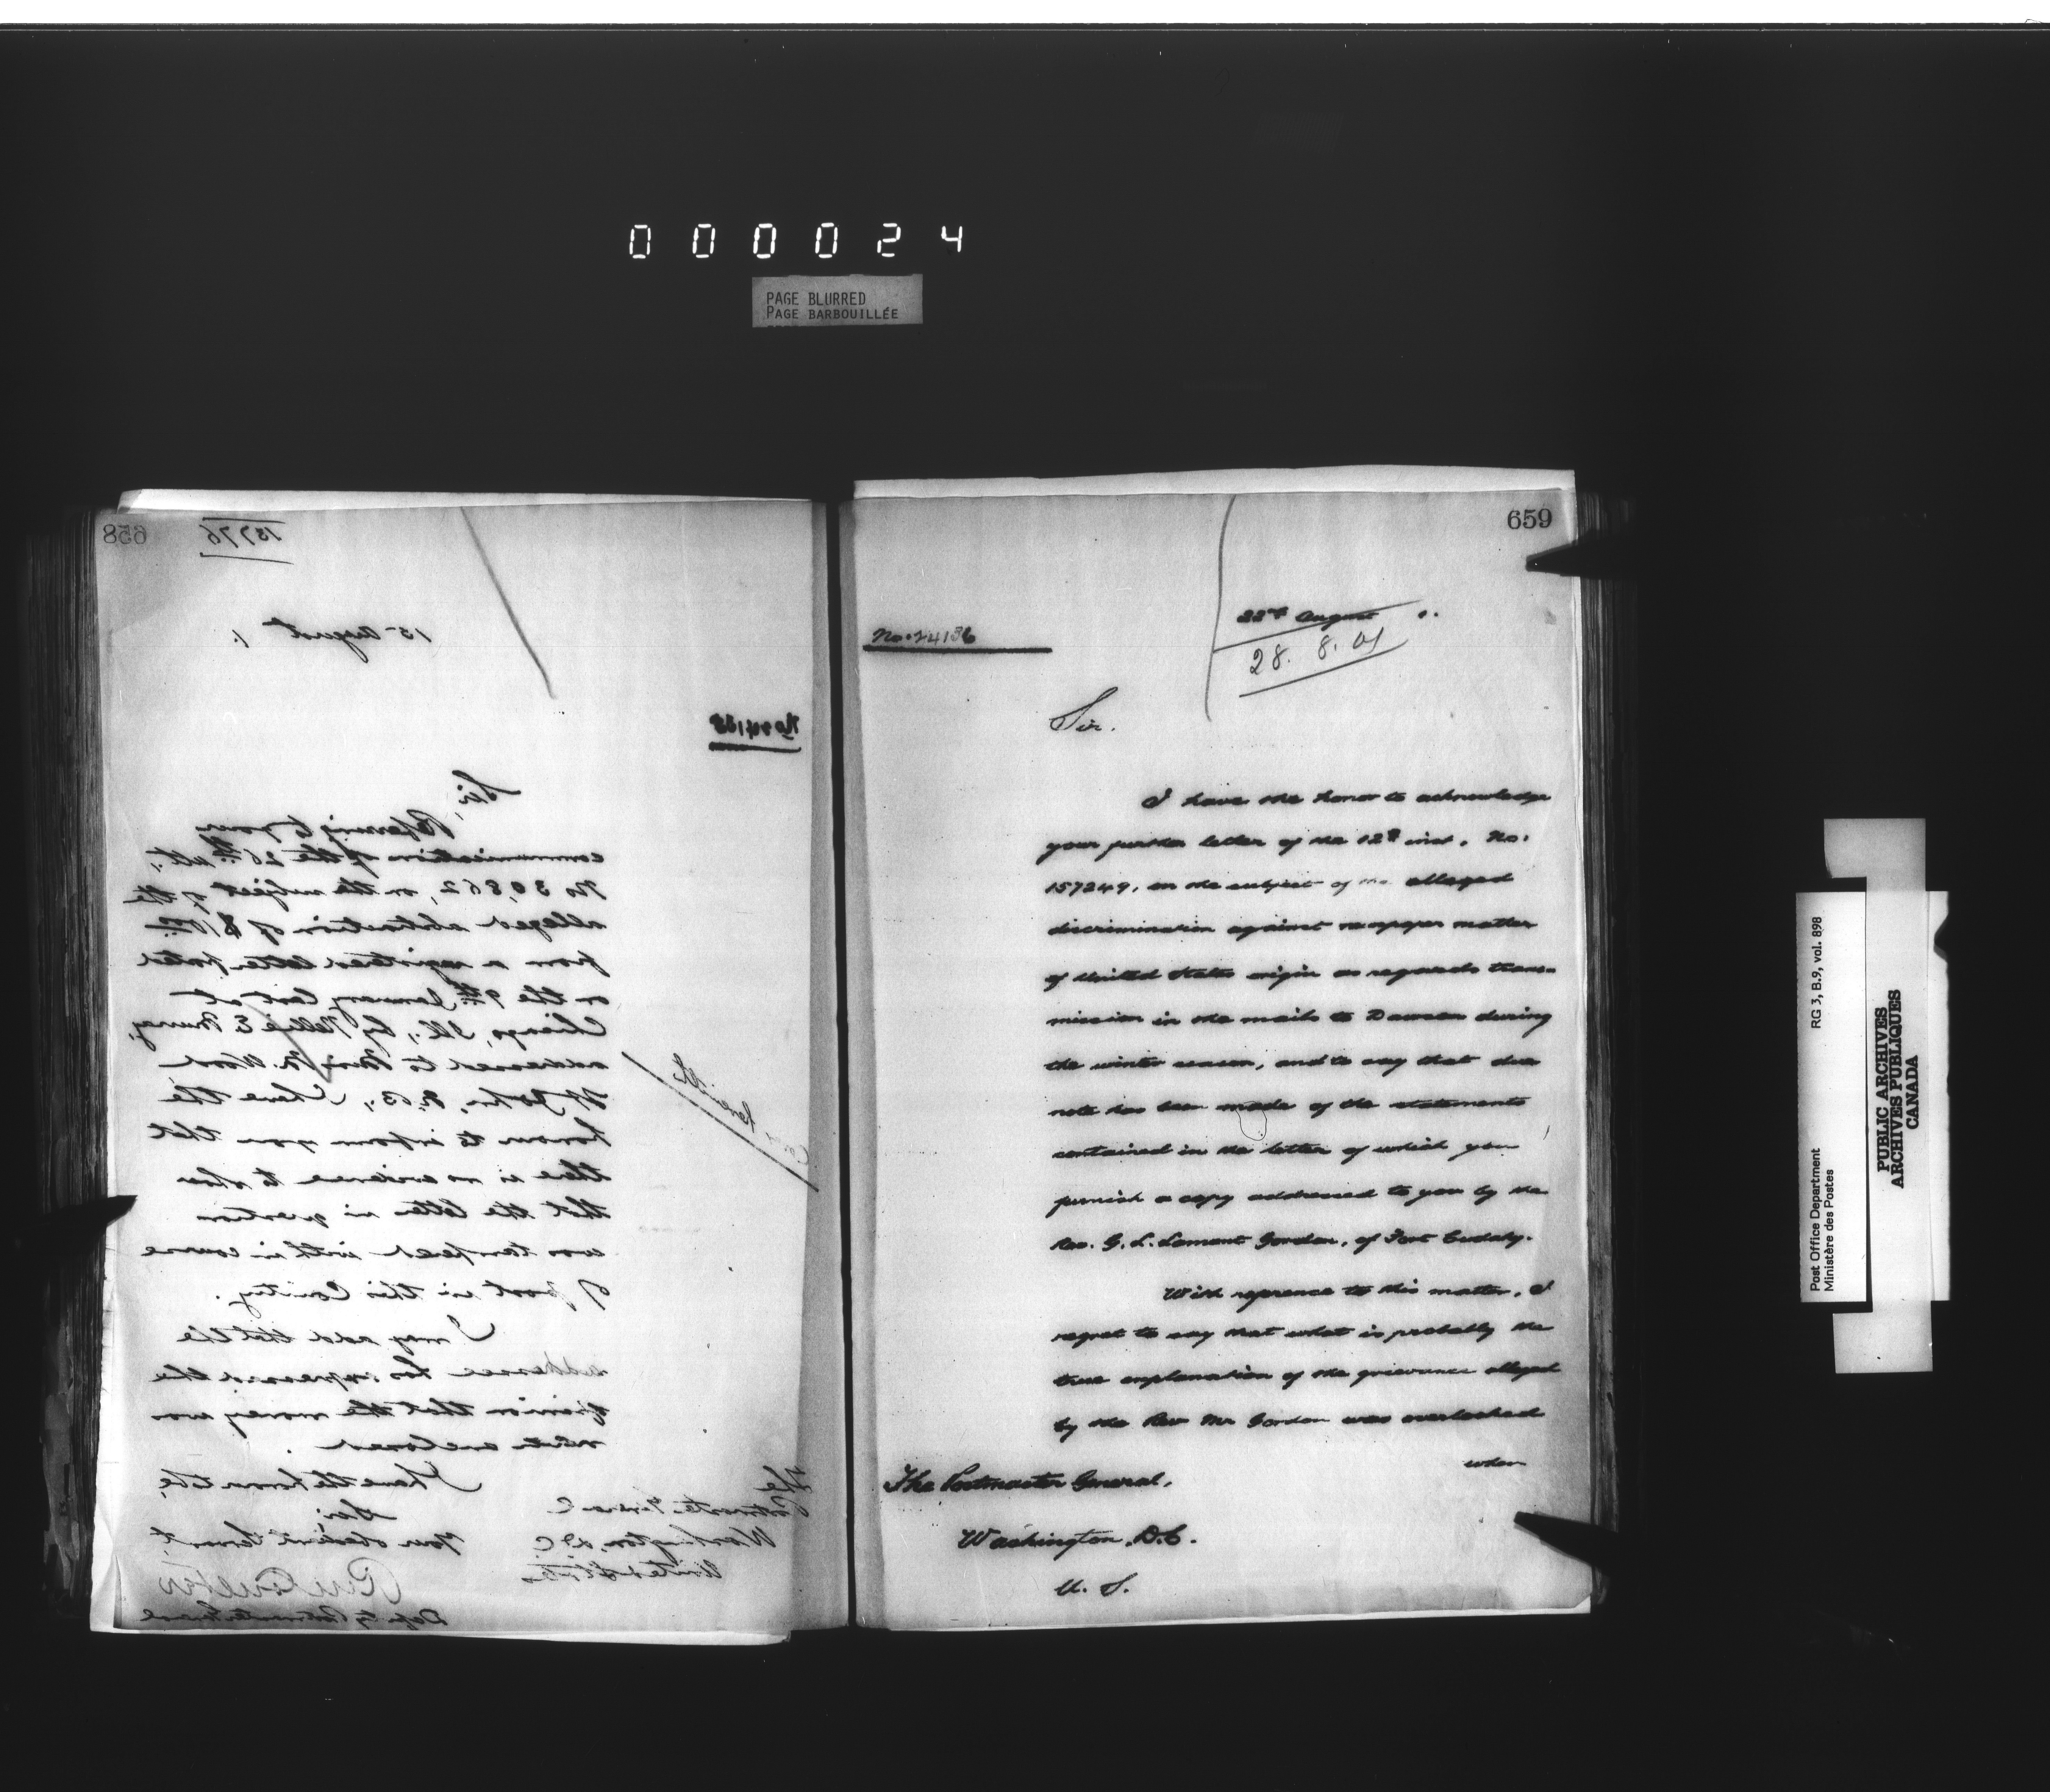 0 0 0 0 2 4
PAGE BLURRED
PAGE BARBOUILLÉE
658
15776
15 August 1.
Sir,
Referring to your
communication of the 26th ult.,
No 30,862, on the subject of the
alleged abstraction of $10
from a registered letter posted
on the 9th January last at
Chicago, Ill., by Nellie E.
addressed to Miss N. Wood
St John, N.B., I have the
honour to inform you that
there is no evidence to show
that the letter in question
was tampered with in course
of post in this Country.
I may add that the
addressee has expressed the
opinion that the money was
never enclosed.
I have the honor to be,
Sir,
Your obedient Servant,
Deputy Postmaster General
The
Postmaster General
Washington, D C
United States
659
22nd August 1.
28. 8. 01
Sir.
I have the honor to acknowledge
your further letter of the 12th inst. No.
157249, on the subject of the alleged
discrimination against newspaper matter
of United States origin as regards trans-
mission in the mails to Dawson during
the winter season, and to say that due
note has been made of the statements
contained in the letter of which you
furnish a copy addressed to you by the
Rev. G. L. Lamont Gordon, of Fort Cudahy.
With reference to this matter, I
regret to say that what is probably the
true explanation of the grievance alleged
by the Rev Mr Gordon was overlooked
when
The Postmaster General,
Washington, D.C.
U. S.
RG 3, B.9, vol. 898
Post Office Department
Ministère des Postes
PUBLIC ARCHIVES
ARCHIVES PUBLIQUES
CANADA